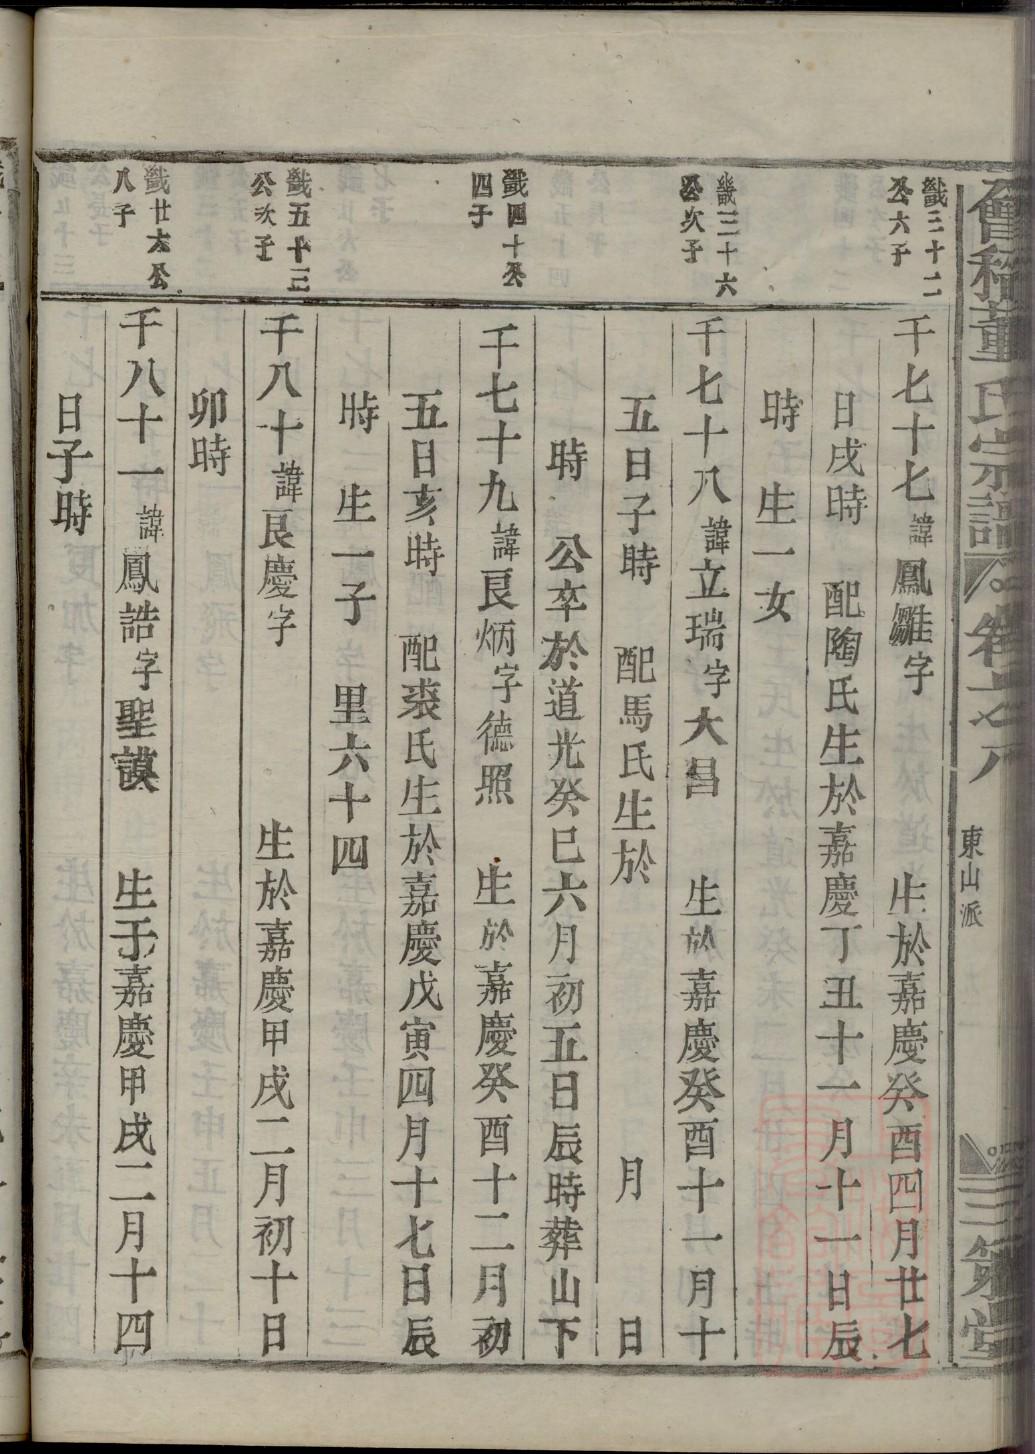 會稽董氏宗譜 卷之八 東山派 三策堂
戩三十二
公六子
千七十七諱鳳雛字 生於嘉慶癸酉四月廿七
日戌時 配陶氏生於嘉慶丁丑十一月十一日辰
時 生一女
戩三十六
公次子
千七十八諱立瑞字大昌 生於嘉慶癸酉十一月十
五日子時 配馬氏生於 月 日
時 公卒於道光癸巳六月初五日辰時葬山下
戩四十公
四子
千七十九諱艮炳字德照 生於嘉慶癸酉十二月初
五日亥時 配裘氏生於嘉慶戊寅四月十七日辰
時 生一子 里六十四
戩五十三
公次子
千八十諱艮慶字 生於嘉慶甲戌二月初十日
卯時
戩廿六公
八子
千八十一諱鳳誥字聖謨 生于嘉慶甲戌二月十四
日子時